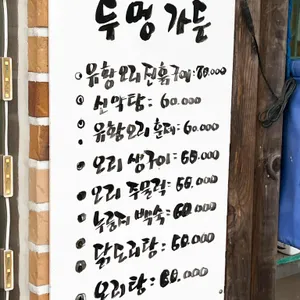 두멍가든
유황오리진흙구이: 70.000
신막탕: 60.000
유황오리훈제: 60.000
오리 생구이: 55.000
오리 주물럭: 55.000
누룽지백숙: 60.000
닭도리탕: 50.000
오리탕: